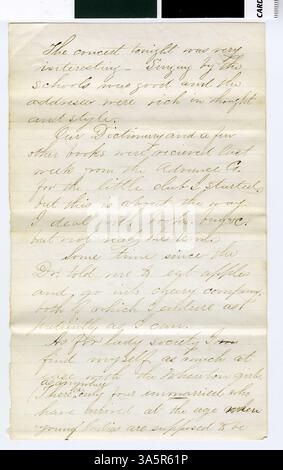 The concert tonight was very
interesting - Singing by the
schools was good and the
addresses were rich in thought
and style.
Our Dictionary and a few
other books were recieved last
week from the Advance Co.
for the little club I started,
but this is about the way
I deal
but not
Some time since the
Dr. told me to eat apples
and go into cheery company
both of which I endure as
patiently as I can.
As for lady society I
find myself as much at
ease with the Wheaton girls
as any where
There's only four unmarried who
have arrived at the age when
young ladies are supposed to be
alamy
CARD
www.alamy.com
Image ID: 3A5R61P